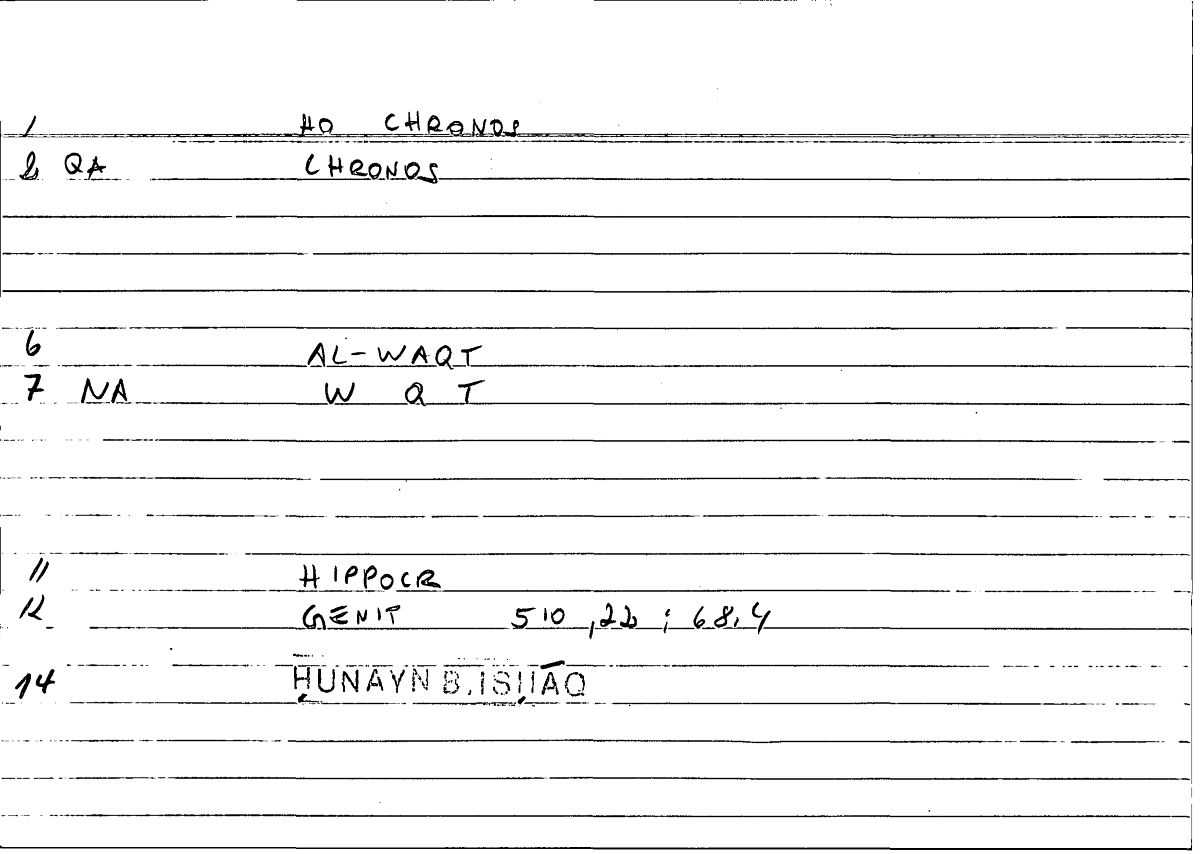 1 HO CHRONOS
2 QA CHRONOS
6 AL-WAQT
7 NA W Q T
11 HIPPOCR
12 GENIT 510,22; 68.4
14 ḤUNAYN B. ISḤĀQ